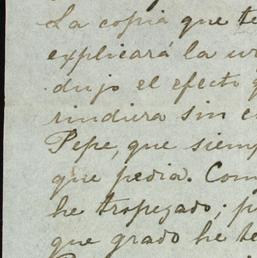 La copia que te
explicará la
dujo el efecto
rindiera sin
Pepe, que siem
que pedia. Com
he tropezado; p
que grado he te